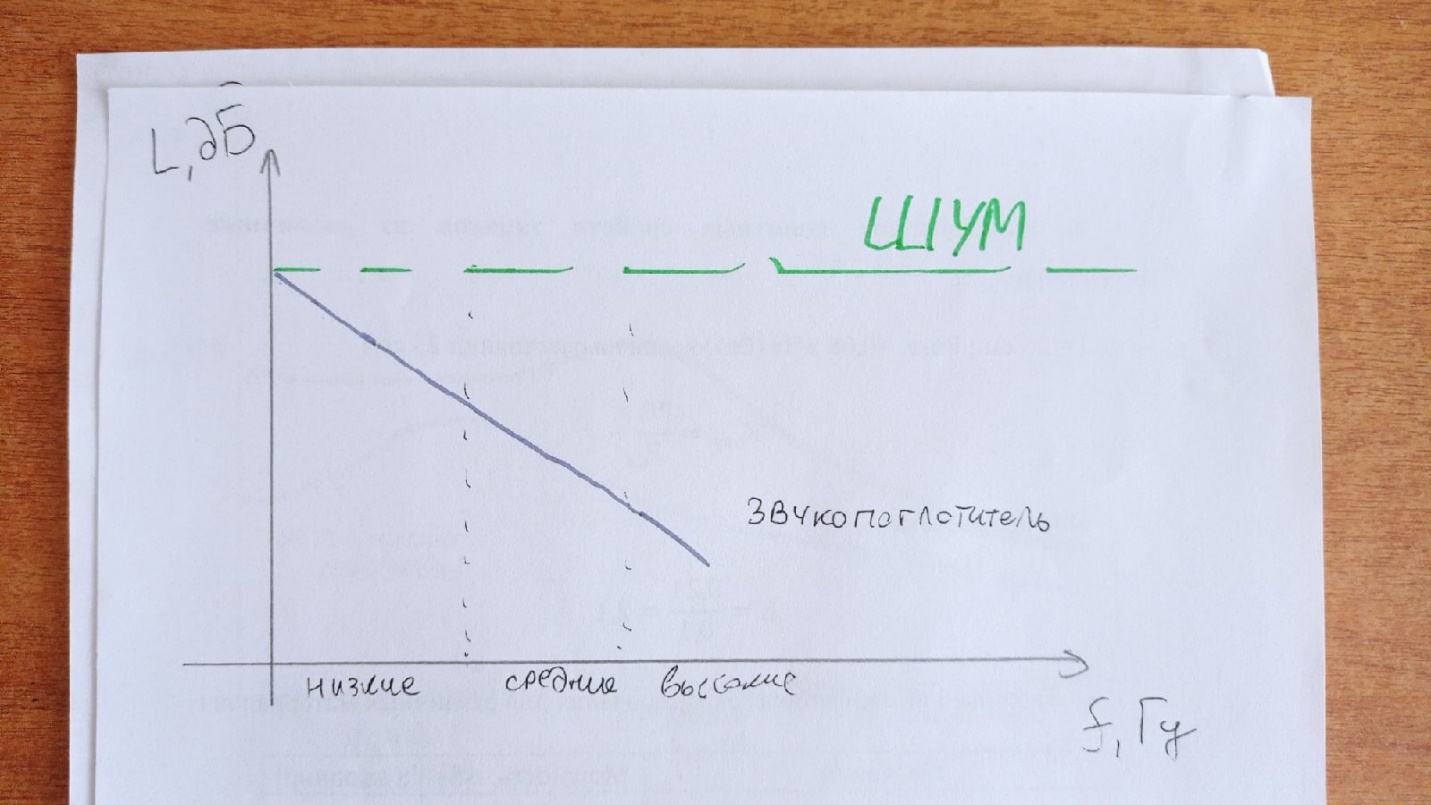 L, дБ
ШУМ
звукопоглотитель
низкие средние высокие
f, Гц